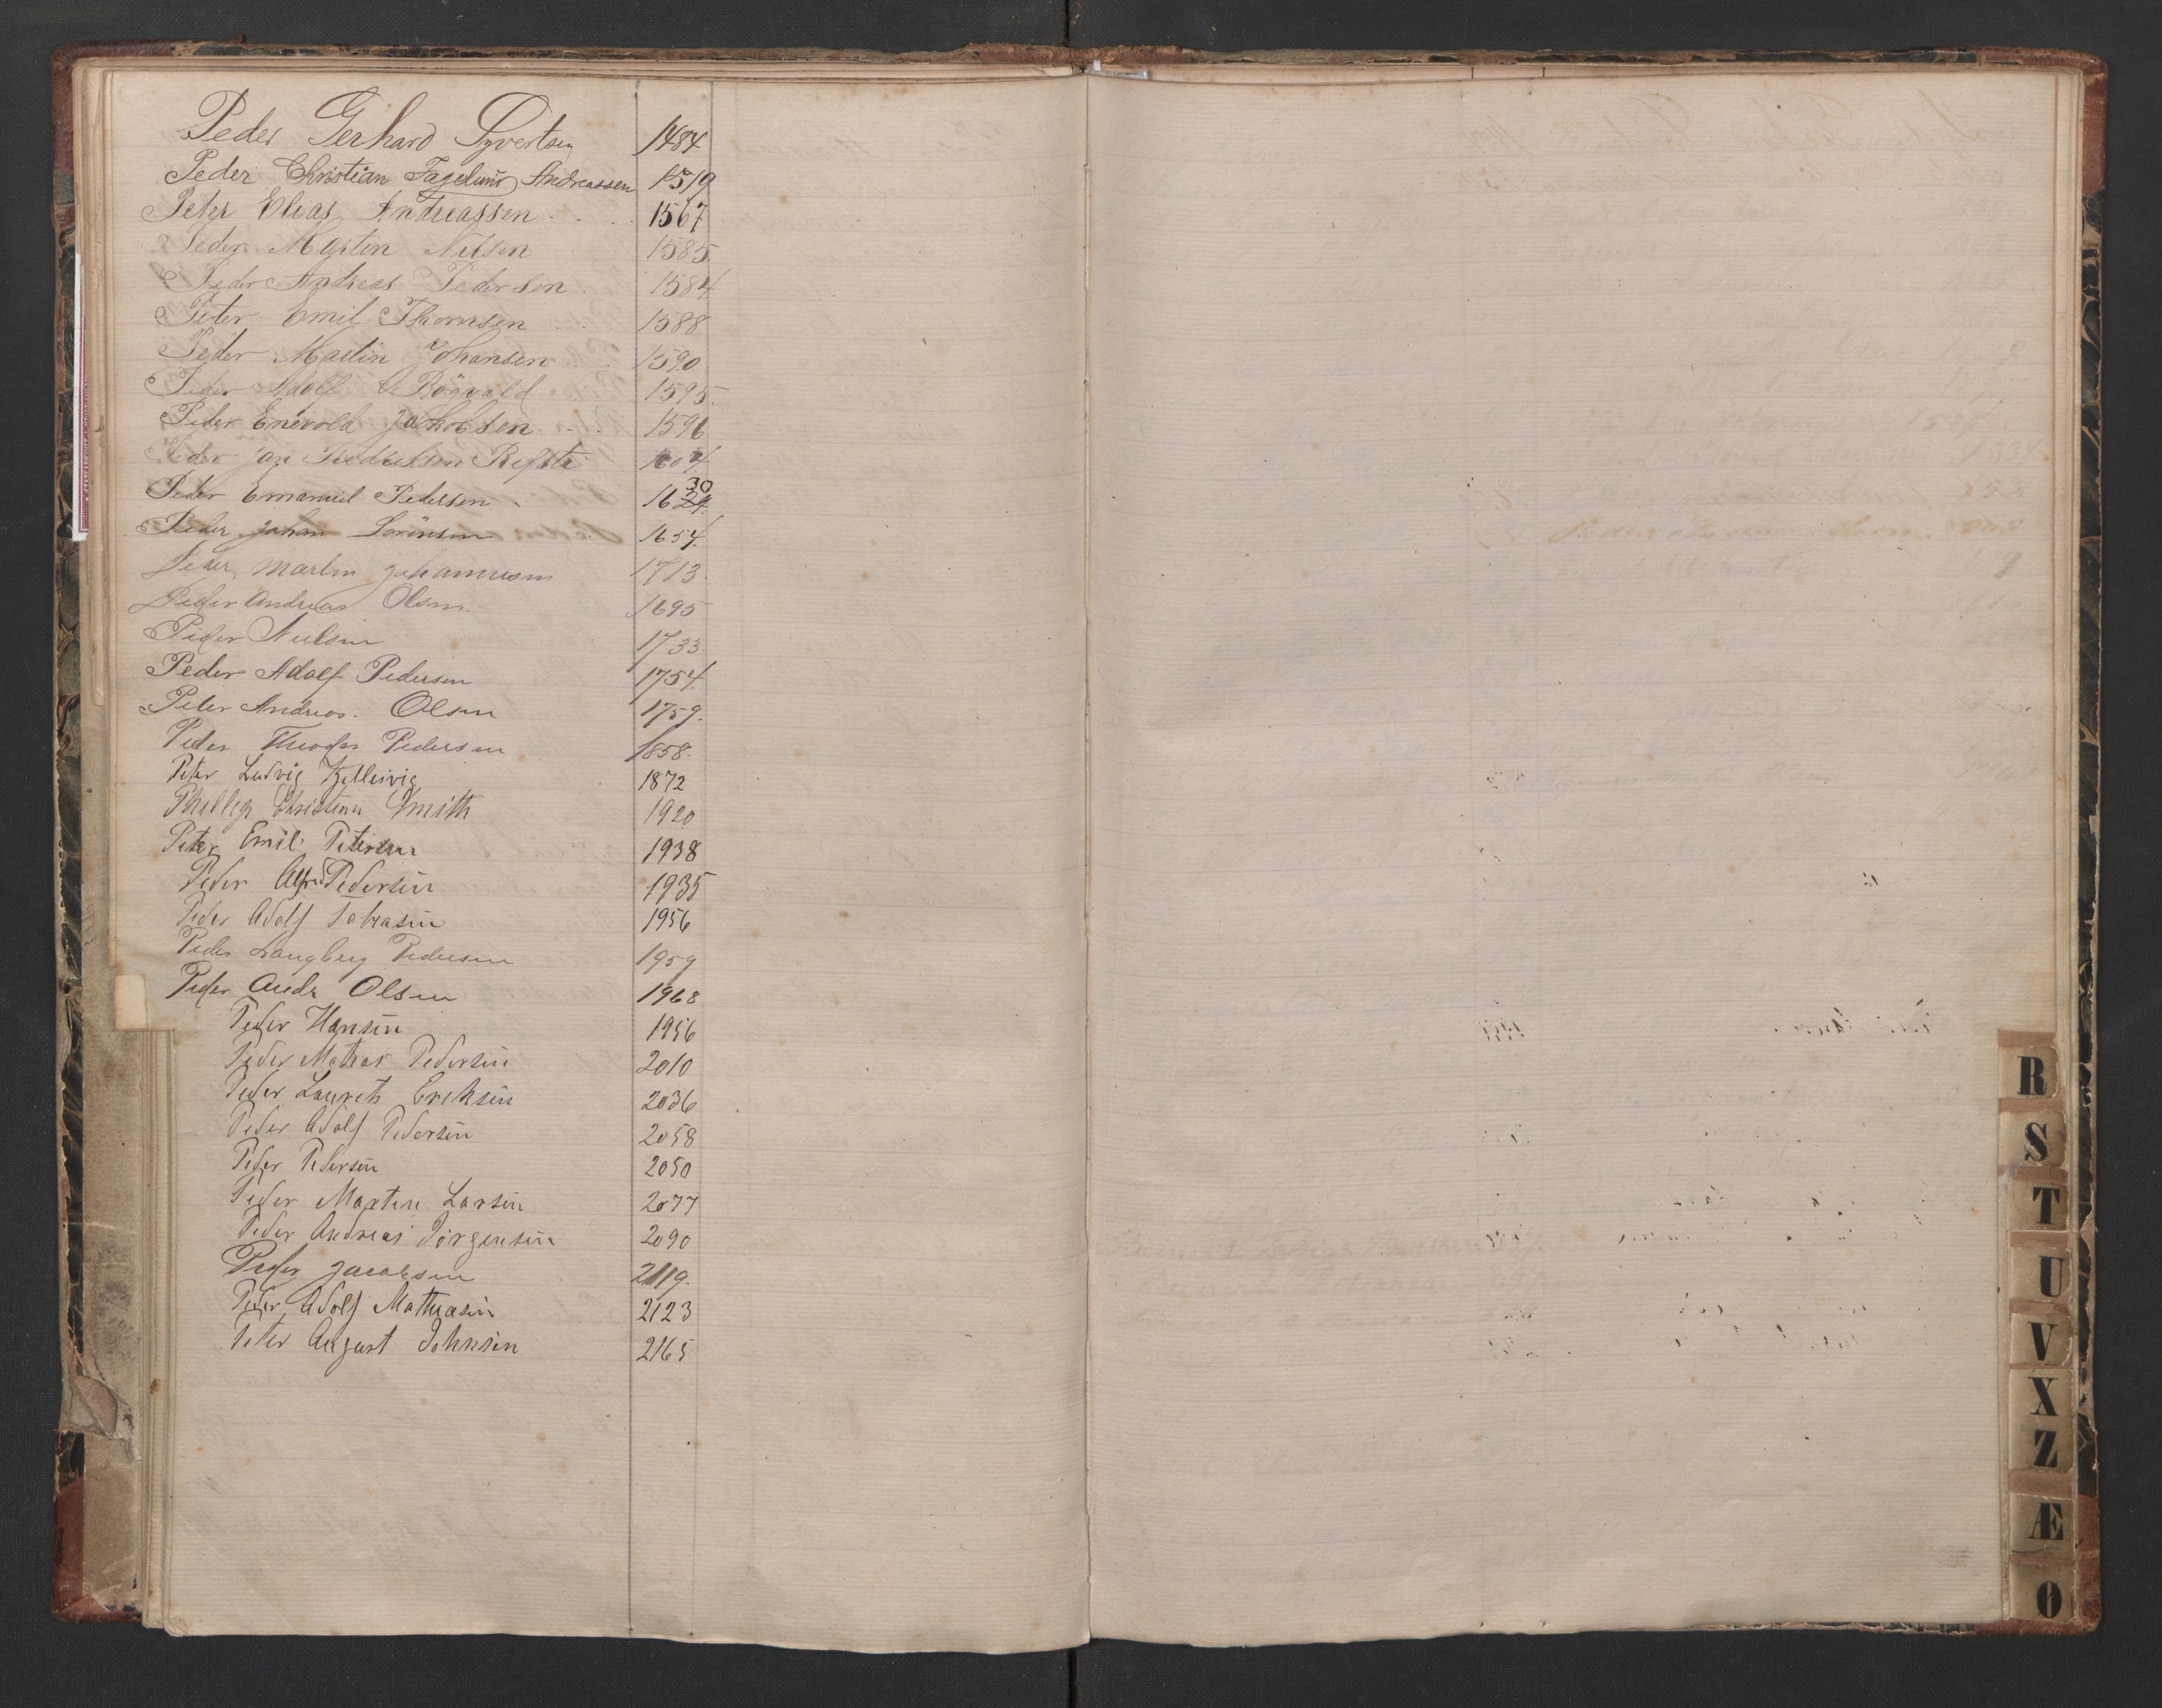 Peder Gerhard Syvertsen 1484
Peder Christian Fagelund Andreassen 1519
Peter Elias Andreassen 1567
Peder Martin Nilsen 1585
Peder Andreas Pedersen 1584
Peter Emil Thomsen 1588
Peder Martin Johansen 1590
Peder Adolf 1595
Peder Enevold Jakobsen 1596
Peder Jan Refsti 1604
Peder Emanuel Pedersen 1630
Peder Johan Sörensen 1654
Peder Martin Johannesen 1713
Peder Andreas Olsen 1695
Peder Nielsen 1733
Peder Adolf Pedersen 1754
Peter Andreas Olsen 1759
Peder Theodor Pedersen 1858
Peter Ludvig Kjelleivig 1872
Phillip Christian Smith 1920
Peter Emil Petersen 1938
Peder Alfred Pedersen 1935
Peder Adolf Tobiasen 1956
Peder Langberg Pedersen 1959
Peder Andr Olsen 1968
Peder Hansen 1956
Peder Mathias Pedersen 2010
Peder Laurits Eriksen 2036
Peder Adolf Pedersen 2058
Peder Pedersen 2050
Peder Martin Larsen 2077
Peder Andreas Jörgensen 2090
Peder Jacobsen 2119
Peder Adolf Mathiasen 2123
Peter August Johnsen 2165
R
S
T
U
V
X
Z
Æ
Ø